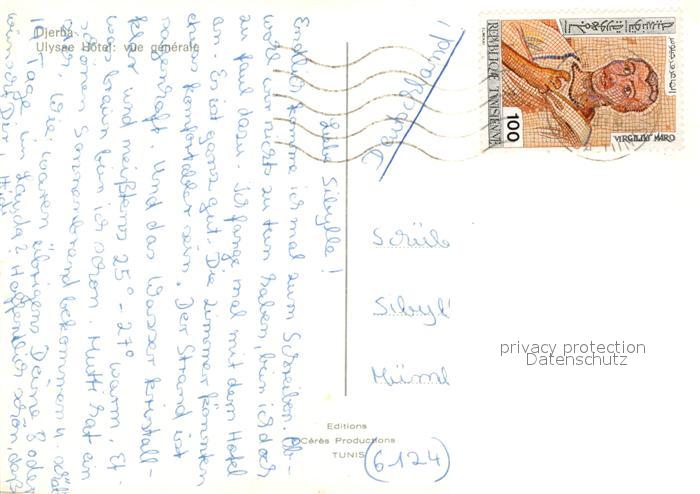 Djerba
Ulysse Hôtel: vue générale
Liebe Sibylle!
Endlich komme ich mal zum Schreiben. Ob-
wohl wir nichts zu tun haben, bin ich doch
zu faul dazu. Ich fange mal mit dem Hotel
an. Es ist ganz gut. Die Zimmer könnten
etwas komfortabler sein. Der Strand ist
fabelhaft. Und das Wasser kristall-
klar und meistens 25° - 27° warm. Et-
was braun bin ich schon. Mutti hat ein
schönen Sonnenbrand bekommen u.
Wie waren übrigens Deine 8 oder
10 Tage in ? Hoffentlich schön, daß
wünscht Dir, Heidi
Sibyl
Editions
Cérès Productions
TUNIS
(6124)
REPUBLIQUE TUNISIENNE
100
VIRGILIUS MARO
privacy protection
Datenschutz